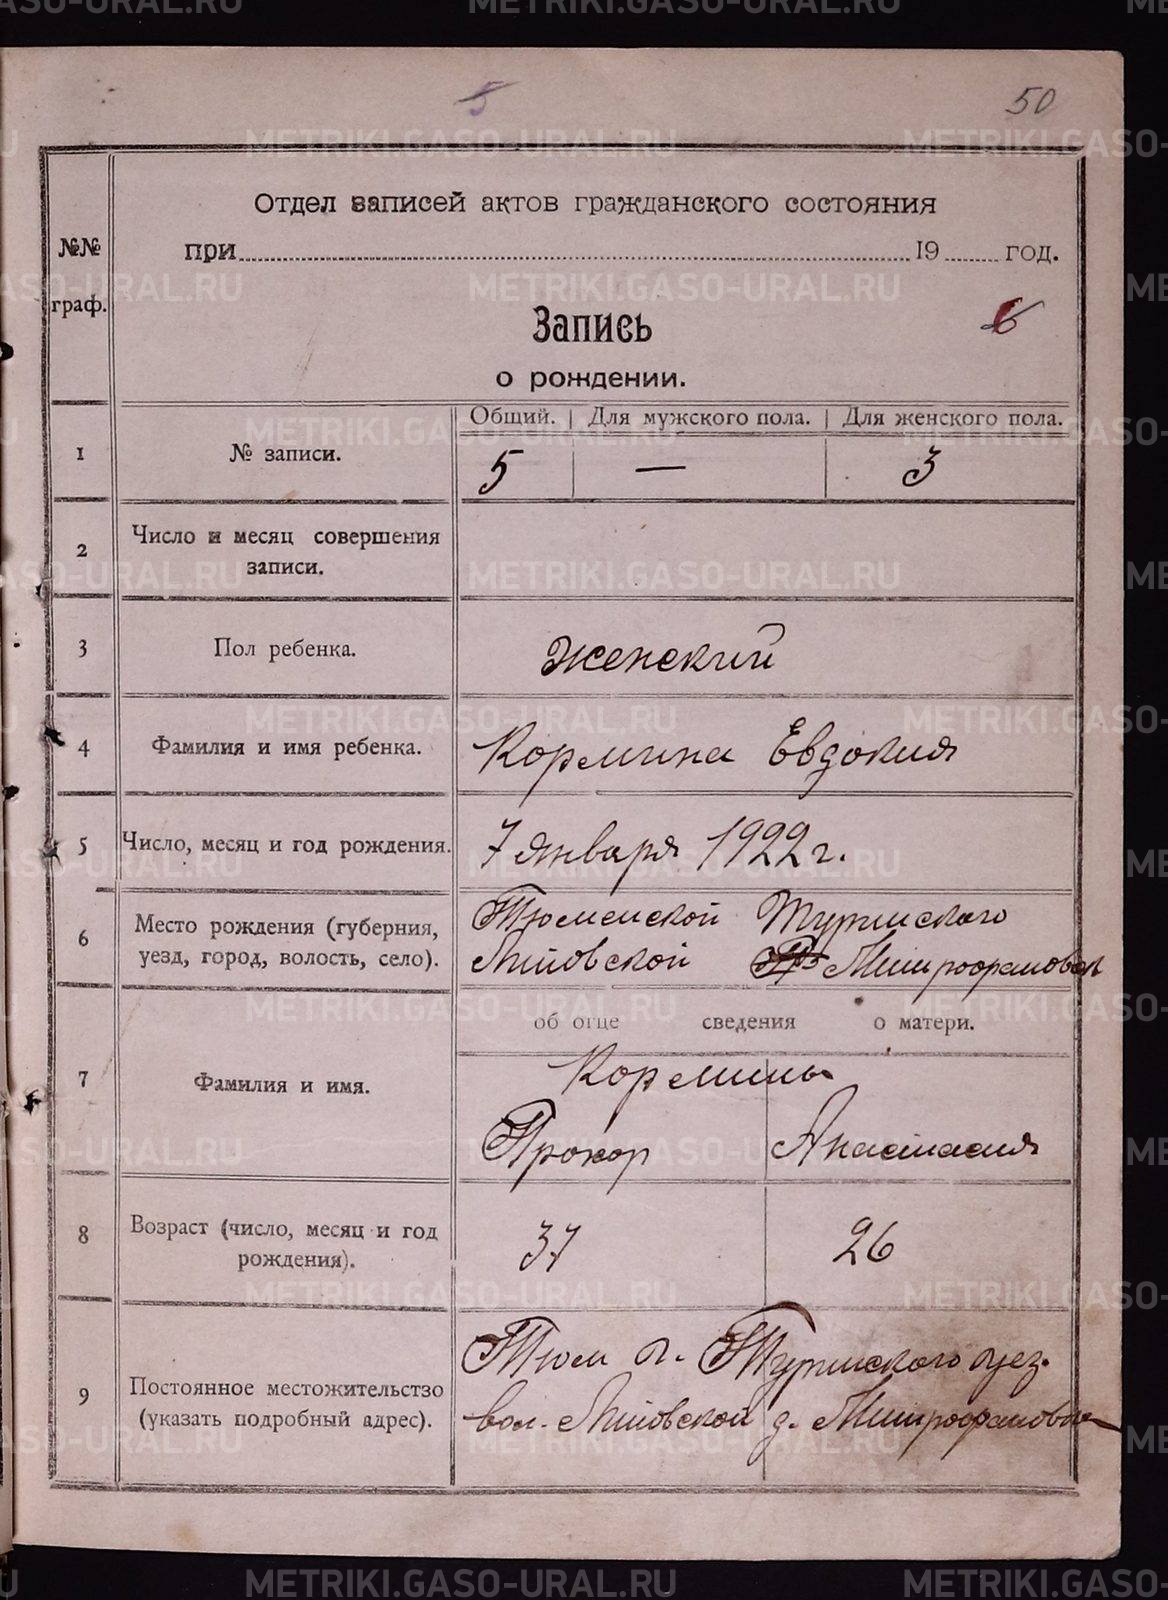 5
50
Отдел записей актов гражданского состояния
№№ при 19 год.
граф.
Запись 6
о рождении.
Общий. Для мужского пола. Для женского пола.
1 № записи. 5 — 3
2 Число и месяц совершения
записи.
3 Пол ребенка. Женский
4 Фамилия и имя ребенка. Кормина Евдокия
5 Число, месяц и год рождения. 7 января 1922 г.
6 Место рождения (губерния, Тюменской Туринского
уезд, город, волость, село). Митрофановой
об отце сведения о матери.
7 Фамилия и имя. Кормины
Прокор Анастасия
8 Возраст (число, месяц и год 37 26
рождения).
Тюм г. Туринского уез.
9 Постоянное местожительство
(указать подробный адрес). вол. д. Митрофановой
METRIKI.GASO-URAL.RU